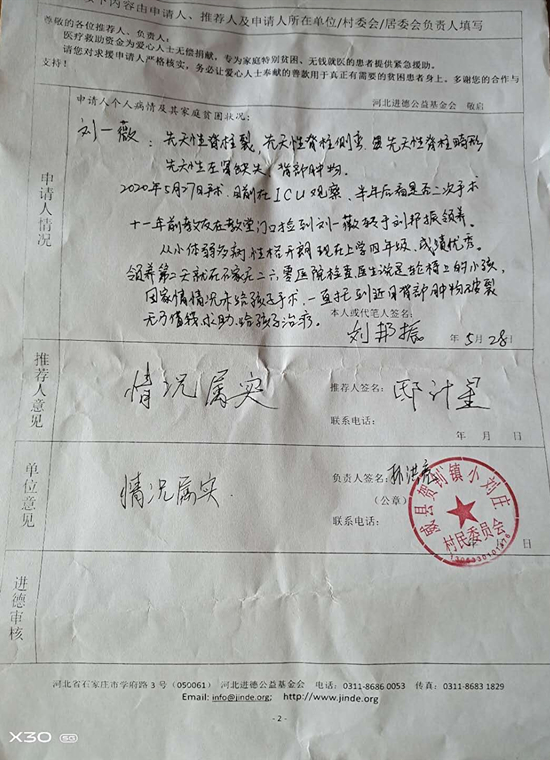 下内容由申请人、推荐人及申请人所在单位/村委会/居委会负责人填写
尊敬的各位推荐人、负责人:
医疗救助资金为爱心人士无偿捐献，专为家庭特别贫困、无钱就医的患者提供紧急援助。
请您对求援申请人严格核实，务必让爱心人士奉献的善款用于真正有需要的贫困患者身上。多谢您的合作与
支持!
河北进德公益基金会 敬启
申请人情况
申请人个人病情及其家庭贫困状况:
刘一薇: 先天性脊柱裂,先天性脊柱侧弯,先天性脊柱畸形
先天性左肾缺失,背部肿物.
2020年5月27日手术.目前在ICU观察.半年后看是否二次手术
十一年前教友在教堂门口捡到刘一薇转于刘邦振领养.
从小体弱多病性格开朗现在上学四年级.成绩优秀.
领养第二天就在石家庄二六零医院检查医生说是轮椅上的小孩,
因家情情况未给孩子手术.一直托到近日背部肿物破裂
无力借钱求助.给孩子治疗。
本人或代笔人签名:
刘邦振 年5月28日
推荐人意见
情况属实
推荐人签名: 邸计星
联系电话:
年 月 日
单位意见
情况属实.
负责人签名:
(公章)
联系电话:
日
威县贺钊镇小刘庄
村民委员会
进德审核
河北省石家庄市学府路3号 (050061) 河北进德公益基金会 电话: 0311-8686 0053 传真: 0311-8683 1829
Email: info@jinde.org; http://www.jinde.org
- 2 -
X30 5G